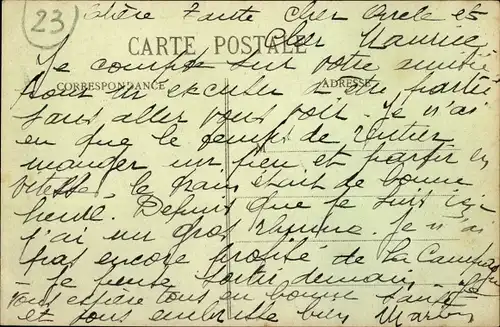 23
Chère Tante Cher Oncle et
Cher Maurice
CARTE POSTALE
Je compte sur votre amitié
CORRESPONDANCE
ADRESSE
pour m' excuser d'être parti
sans aller vous voir. Je n'ai
eu que le temps de rentrer
manger un peu et partir en
vitesse, le train était de bonne
heure. Depuis que je suis ici
j'ai un gros rhume. Je n'ai
pas encore profité de la Campagne
- je pense sortir demain. Je
vous espère tous en bonne santé
et vous embrasse bien